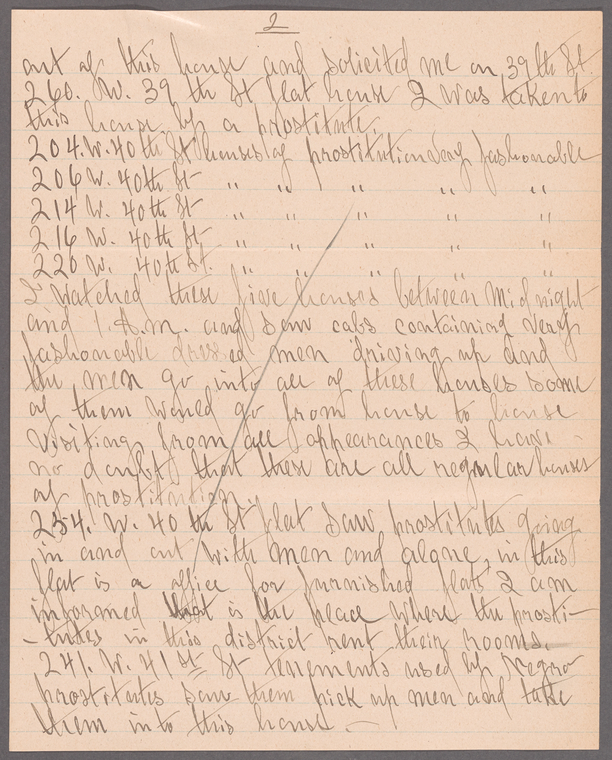 2
out of this house and solicited me on 39th St.
260. W. 39th St flat house I was taken to
this house by a prostitute.
204. W. 40th St houses of prostitution very fashionable
206 W. 40th St " " " " "
214 W. 40th St " " " " "
216 W. 40th St, " " " " "
220 W. 40th St. " " " " "
I watched these five houses between Midnight
and 1. A.m. and saw cabs containing very
fashionable dressed men driving up and
the men go into all of these houses some
of them would go from house to house
visiting from all appearances I have
no doubt that these are all regular houses
of prostitution.
254. W. 40th St flat saw prostitutes going
in and out with men and alone, in this
flat is a office for furnished flats I am
informed that is the place where the prosti-
-tutes in this district rent their rooms.
241. W. 41st St tenements used by Negro
prostitutes saw them pick up men and take
them into this house. —